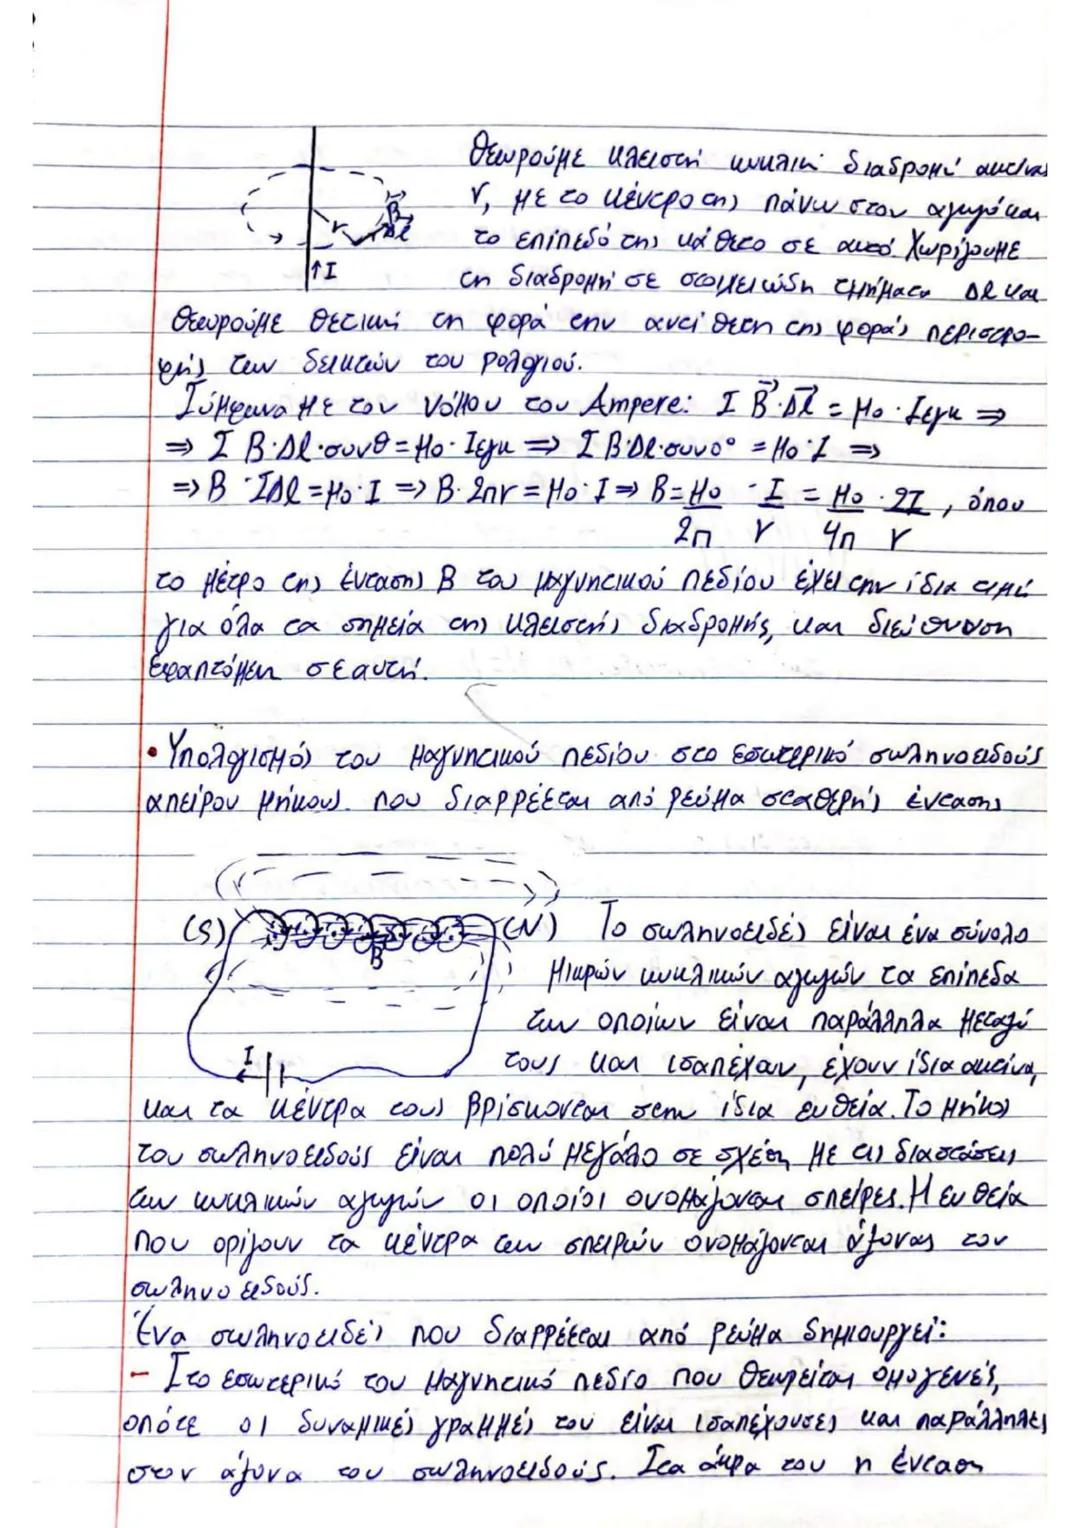 Θεωρούμε κλειστή κυκλική διαδρομή ακτίνας
r, με το κέντρο της πάνω στον αγωγό και
το επίπεδό της κάθετο σε αυτό. Χωρίζουμε
τη διαδρομή σε στοιχειώδη τμήματα Δl και
θεωρούμε θετική τη φορά την αντίθετη της φοράς περιστρο-
φής των δεικτών του ρολογιού.
B
Δl
r
↑I
Σύμφωνα με τον νόμου του Ampere: Σ B⃗·Δl⃗ = μ₀·Iεγκ ⇒
⇒ Σ B·Δl·συνθ = μ₀·Iεγκ ⇒ Σ B·Δl·συν0° = μ₀·I ⇒
⇒ B·ΣΔl = μ₀·I ⇒ B·2πr = μ₀·I ⇒ B = μ₀/2π · I/r = μ₀/4π · 2I/r, όπου
το μέτρο της έντασης B του μαγνητικού πεδίου έχει την ίδια τιμή
για όλα τα σημεία της κλειστής διαδρομής, και διεύθυνση
εφαπτόμενη σε αυτή.
• Υπολογισμός του μαγνητικού πεδίου στο εσωτερικό σωληνοειδούς
απείρου μήκους. που διαρρέεται από ρεύμα σταθερής έντασης
(S) (N) Το σωληνοειδές είναι ένα σύνολο
B
μικρών κυκλικών αγωγών τα επίπεδα
των οποίων είναι παράλληλα μεταξύ
I
τους και ισαπέχαν, έχουν ίδια ακτίνα,
και τα κέντρα τους βρίσκονται στην ίδια ευθεία. Το μήκος
του σωληνοειδούς είναι πολύ μεγάλο σε σχέση με τις διαστάσεις
των κυκλικών αγωγών οι οποίοι ονομάζονται σπείρες. Η ευθεία
που ορίζουν τα κέντρα των σπειρών ονομάζονται άξονας του
σωληνοειδούς.
Ένα σωληνοειδές που διαρρέεται από ρεύμα δημιουργεί:
- Στο εσωτερικό του μαγνητικό πεδίο που θεωρείται ομογενές,
οπότε οι δυναμικές γραμμές του είναι ισαπέχουσες και παράλληλες
στον άξονα του σωληνοειδούς. Στα άκρα του η ένταση